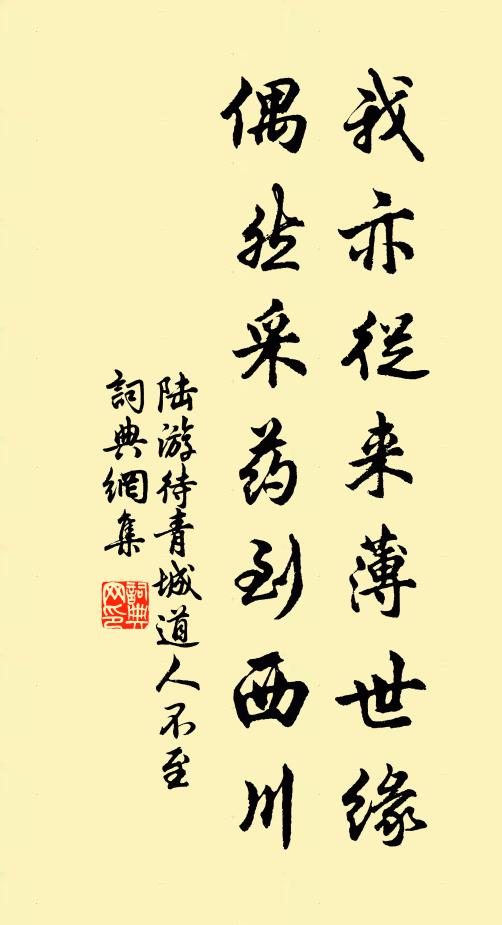 我亦從来薄世緣
偶然采药到西川
陆游待青城道人不至
詞典網集
詞典
网印